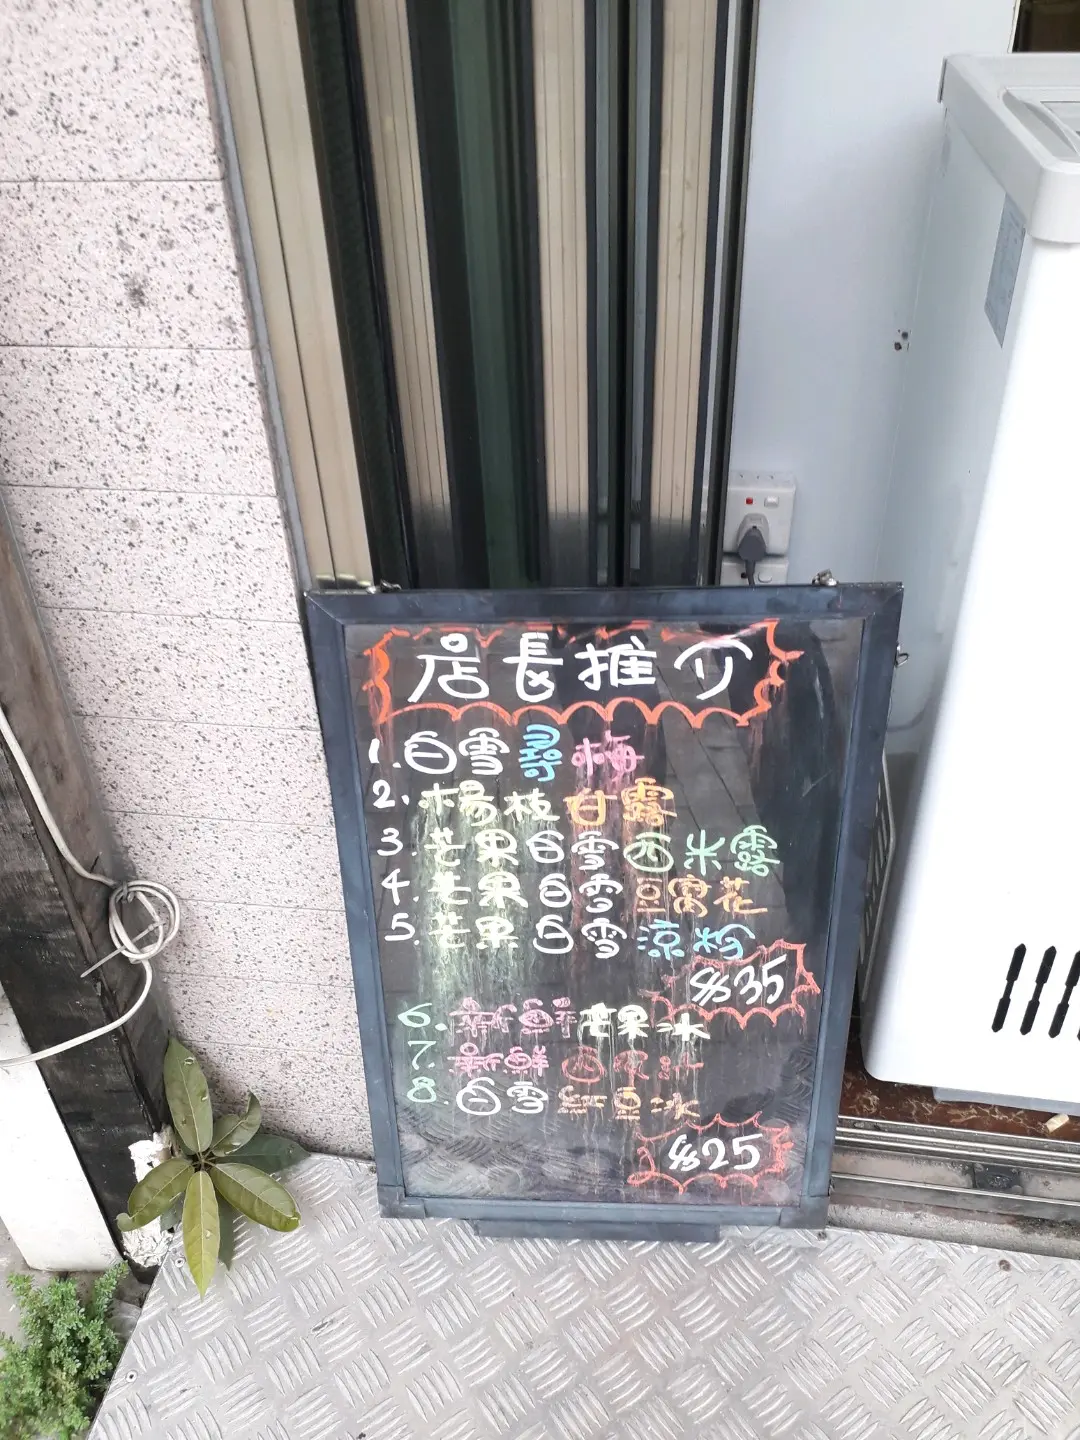 店長推介
1.白雪尋梅
2.楊枝甘露
3.芒果白雪西米露
4.芒果白雪豆腐花
5.芒果白雪涼粉
$35
6.新鮮芒果冰
7.新鮮西瓜冰
8.白雪紅豆冰
$25